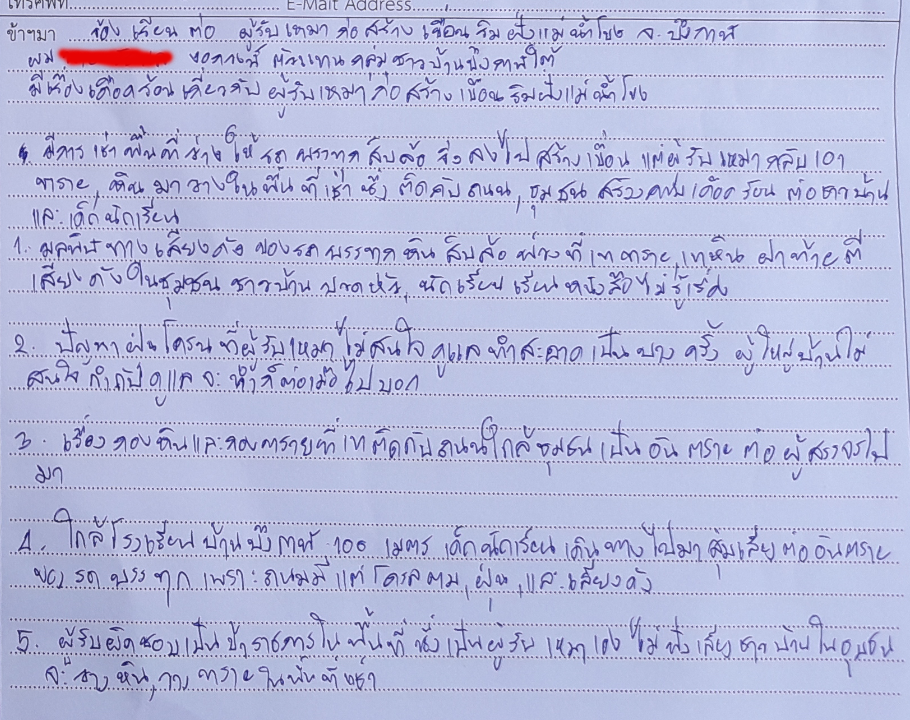 โทรศัพท์ E-Mail Address
ข้าฯมา ร้องเรียน ต่อ ผู้รับเหมา ก่อสร้าง เขื่อน ริมฝั่งแม่น้ำโขง จ. บึงกาฬ
ผม ตัวแทน กลุ่มชาวบ้านบึงกาฬใต้
มีเรื่องเดือดร้อน เกี่ยวกับ ผู้รับเหมา ก่อสร้าง เขื่อนริมฝั่งแม่น้ำโขง
มีการ เช่าพื้นที่ว่าง ให้ รถบรรทุก สิบล้อ วิ่ง ลงไปสร้างเขื่อน แต่ผู้รับเหมา กลับเอา
ทราย, หิน มาวางในพื้นที่เช่า ซึ่งติดกับถนน, ชุมชน สร้างความเดือดร้อน ต่อชาวบ้าน
และเด็กนักเรียน
1. มลพิษทางเสียงดัง ของรถบรรทุก หิน สิบล้อ พ่วง ที่เททราย, เทหิน ฝาท้ายตี
เสียงดังในชุมชน ชาวบ้าน ปวดหัว, นักเรียน เรียนหนังสือไม่รู้เรื่อง
2. ปัญหาฝุ่นโคลน ที่ผู้รับเหมาไม่สนใจ ดูแล ทำสะอาด เป็นบางครั้ง ผู้ใหญ่บ้านไม่
สนใจ กำกับดูแล จะทำก็ต่อเมื่อไปบอก
3. เรื่องกองหินและกองทรายที่เทติดกับถนนใกล้ชุมชน เป็นอันตราย ต่อ ผู้สัญจรไป
มา
4. ใกล้โรงเรียนบ้านบึงกาฬ 100 เมตร เด็กนักเรียน เดินทางไปมา สุ่มเสี่ยงต่ออันตราย
ของรถบรรทุก เพราะถนนมีแต่ โคลนตม, ฝุ่น, และเสียงดัง
5. ผู้รับผิดชอบเป็นข้าราชการในพื้นที่ ซึ่งเป็นผู้รับเหมาเอง ไม่ฟังเสียงชาวบ้านในชุมชน
จะวางหิน, วางทรายในพื้นที่เช่า